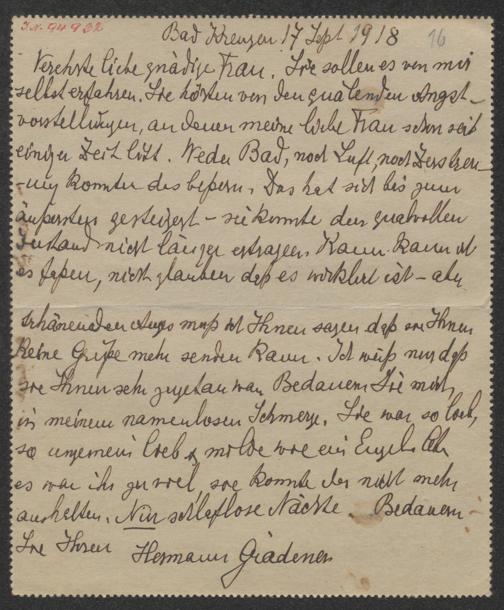 I.N. 94932
Bad Kreuzen 17 Sept 1918 16
Verehrte liebe gnädige Frau. Sie sollen es von mir
selbst erfahren. Sie hörten von den quälenden Angst-
vorstellungen, an denen meine liebe Frau schon seit
einiger Zeit litt. Weder Bad, noch Luft, noch Zerstreu-
-ung konnten das beßern. Das hat sich bis zum
äußersten gesteigert – sie konnte den qualvollen
Zustand nicht länger ertragen. Kaum kann ich
es faßen, nicht glauben daß es wirklich ist – aber
thränenden Auges muß ich Ihnen sagen daß sie Ihnen
keine Grüße mehr senden kann. Ich weiß nur daß
sie Ihnen sehr zugetan war. Bedauern Sie mich,
in meinem namenlosen Schmerze. Sie war so lieb,
so ungemein lieb & milde wie ein Engel.
es war ihr zu viel, sie konnte das nicht mehr
aushalten. Nur schlaflose Nächte. Bedauern
Sie Ihren
Hermann Grädener